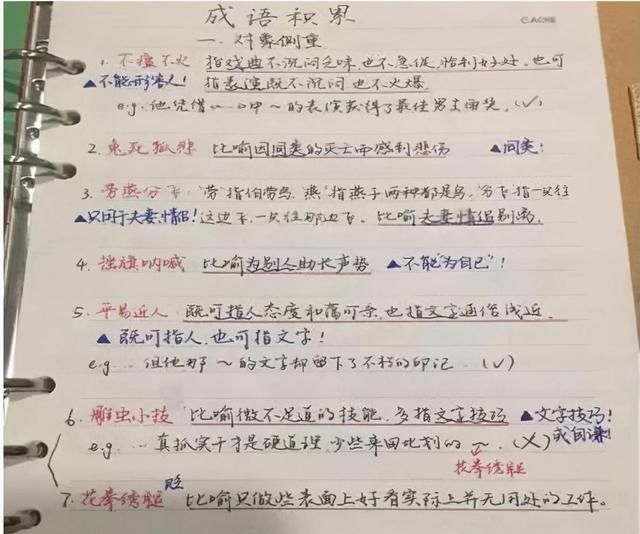 成语积累
一、对象侧重
1. 不瘟不火 指戏曲不沉闷乏味,也不急促,恰到好处,也可
▲不能形容人! 指表演既不沉闷也不火爆.
e.g. 他凭借……中~的表演获得了最佳男主角奖.(√)
2. 兔死狐悲 比喻因同类的灭亡而感到悲伤 ▲同类!
3. 劳燕分飞 "劳"指伯劳鸟,"燕"指燕子两种都是鸟,分飞指一只往
▲只用于夫妻情侣! 这边飞,一只往那边飞. 比喻夫妻情侣别离.
4. 摇旗呐喊 比喻为别人助长声势 ▲不能"为自己"!
5. 平易近人 既可指人态度和蔼可亲,也指文字通俗浅近.
▲既可指人,也可指文字!
e.g. … 但他那~的文字却留下了不朽的印记.(√)
6. 雕虫小技 比喻微不足道的技能,多指文字技巧 ▲文字技巧!
或自谦!
e.g. … 真抓实干才是硬道理,少些来回比划的~.(×)
花拳绣腿
7. 花拳绣腿 比喻只做些表面上好看实际上并无用处的工作。